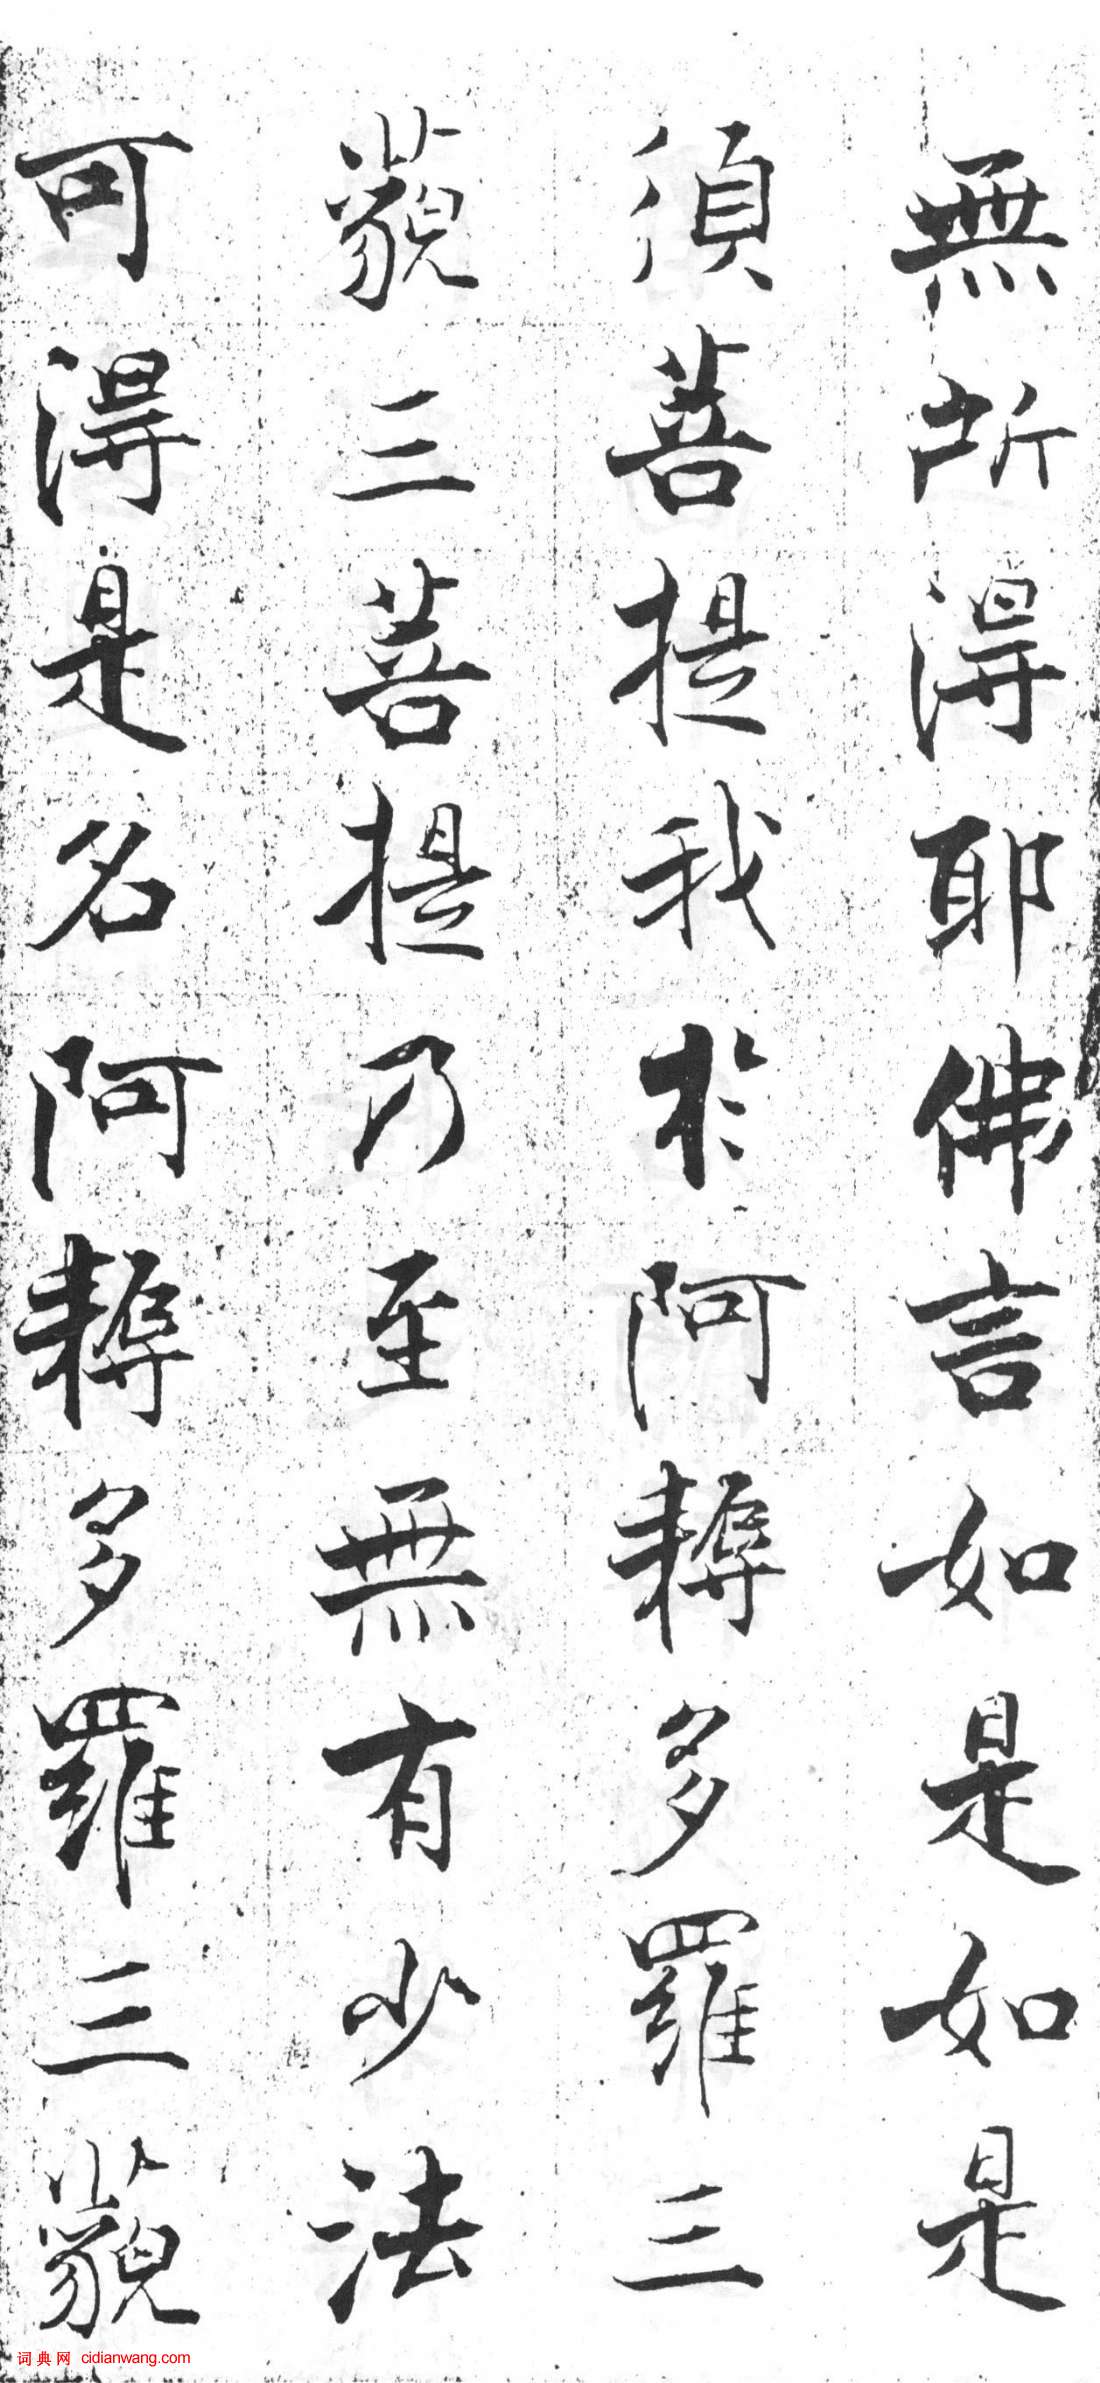 無所得耶佛言如是如是
須菩提我於阿耨多羅三
藐三菩提乃至無有少法
可得是名阿耨多羅三藐
词典网 cidianwang.com